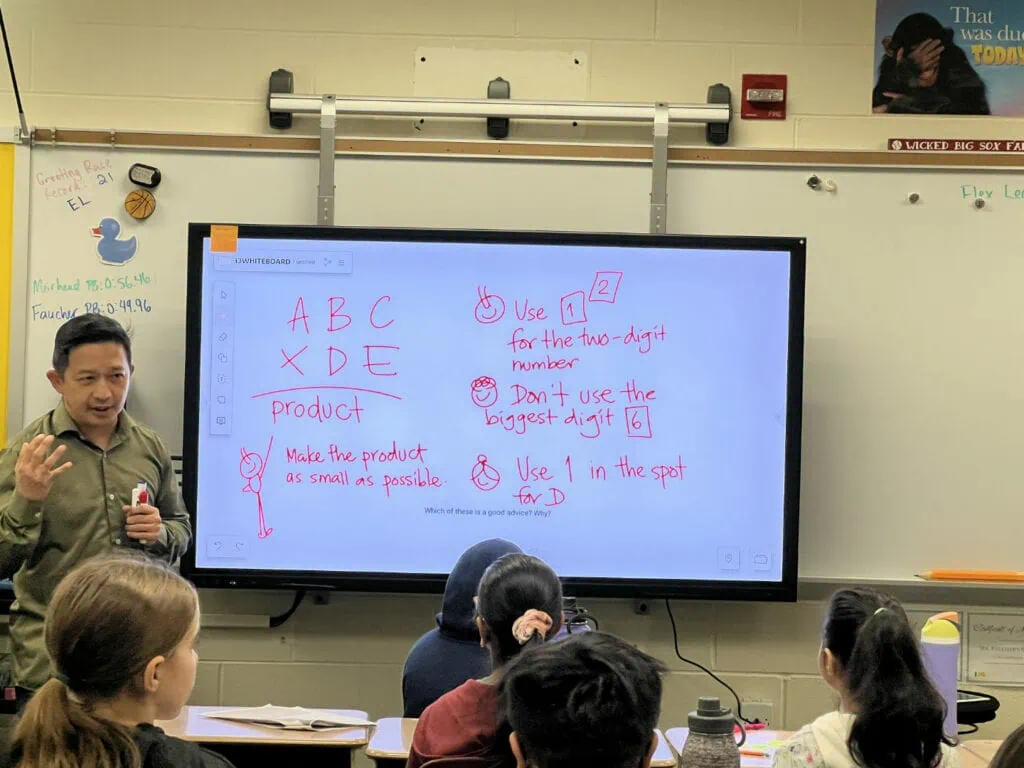 That
was du
TODAY
FIRE
WICKED BIG SOX FA
Greeting Rush
Record: 21
EL
Muirhead PB: 0:56.46
Faucher PB: 0:49.96
Flex Le
WHITEBOARD
A B C
X D E
product
Make the product
as small as possible.
Use 1 2
for the two-digit
number
Don't use the
biggest digit 6
Use 1 in the spot
for D
Which of these is a good advice? Why?